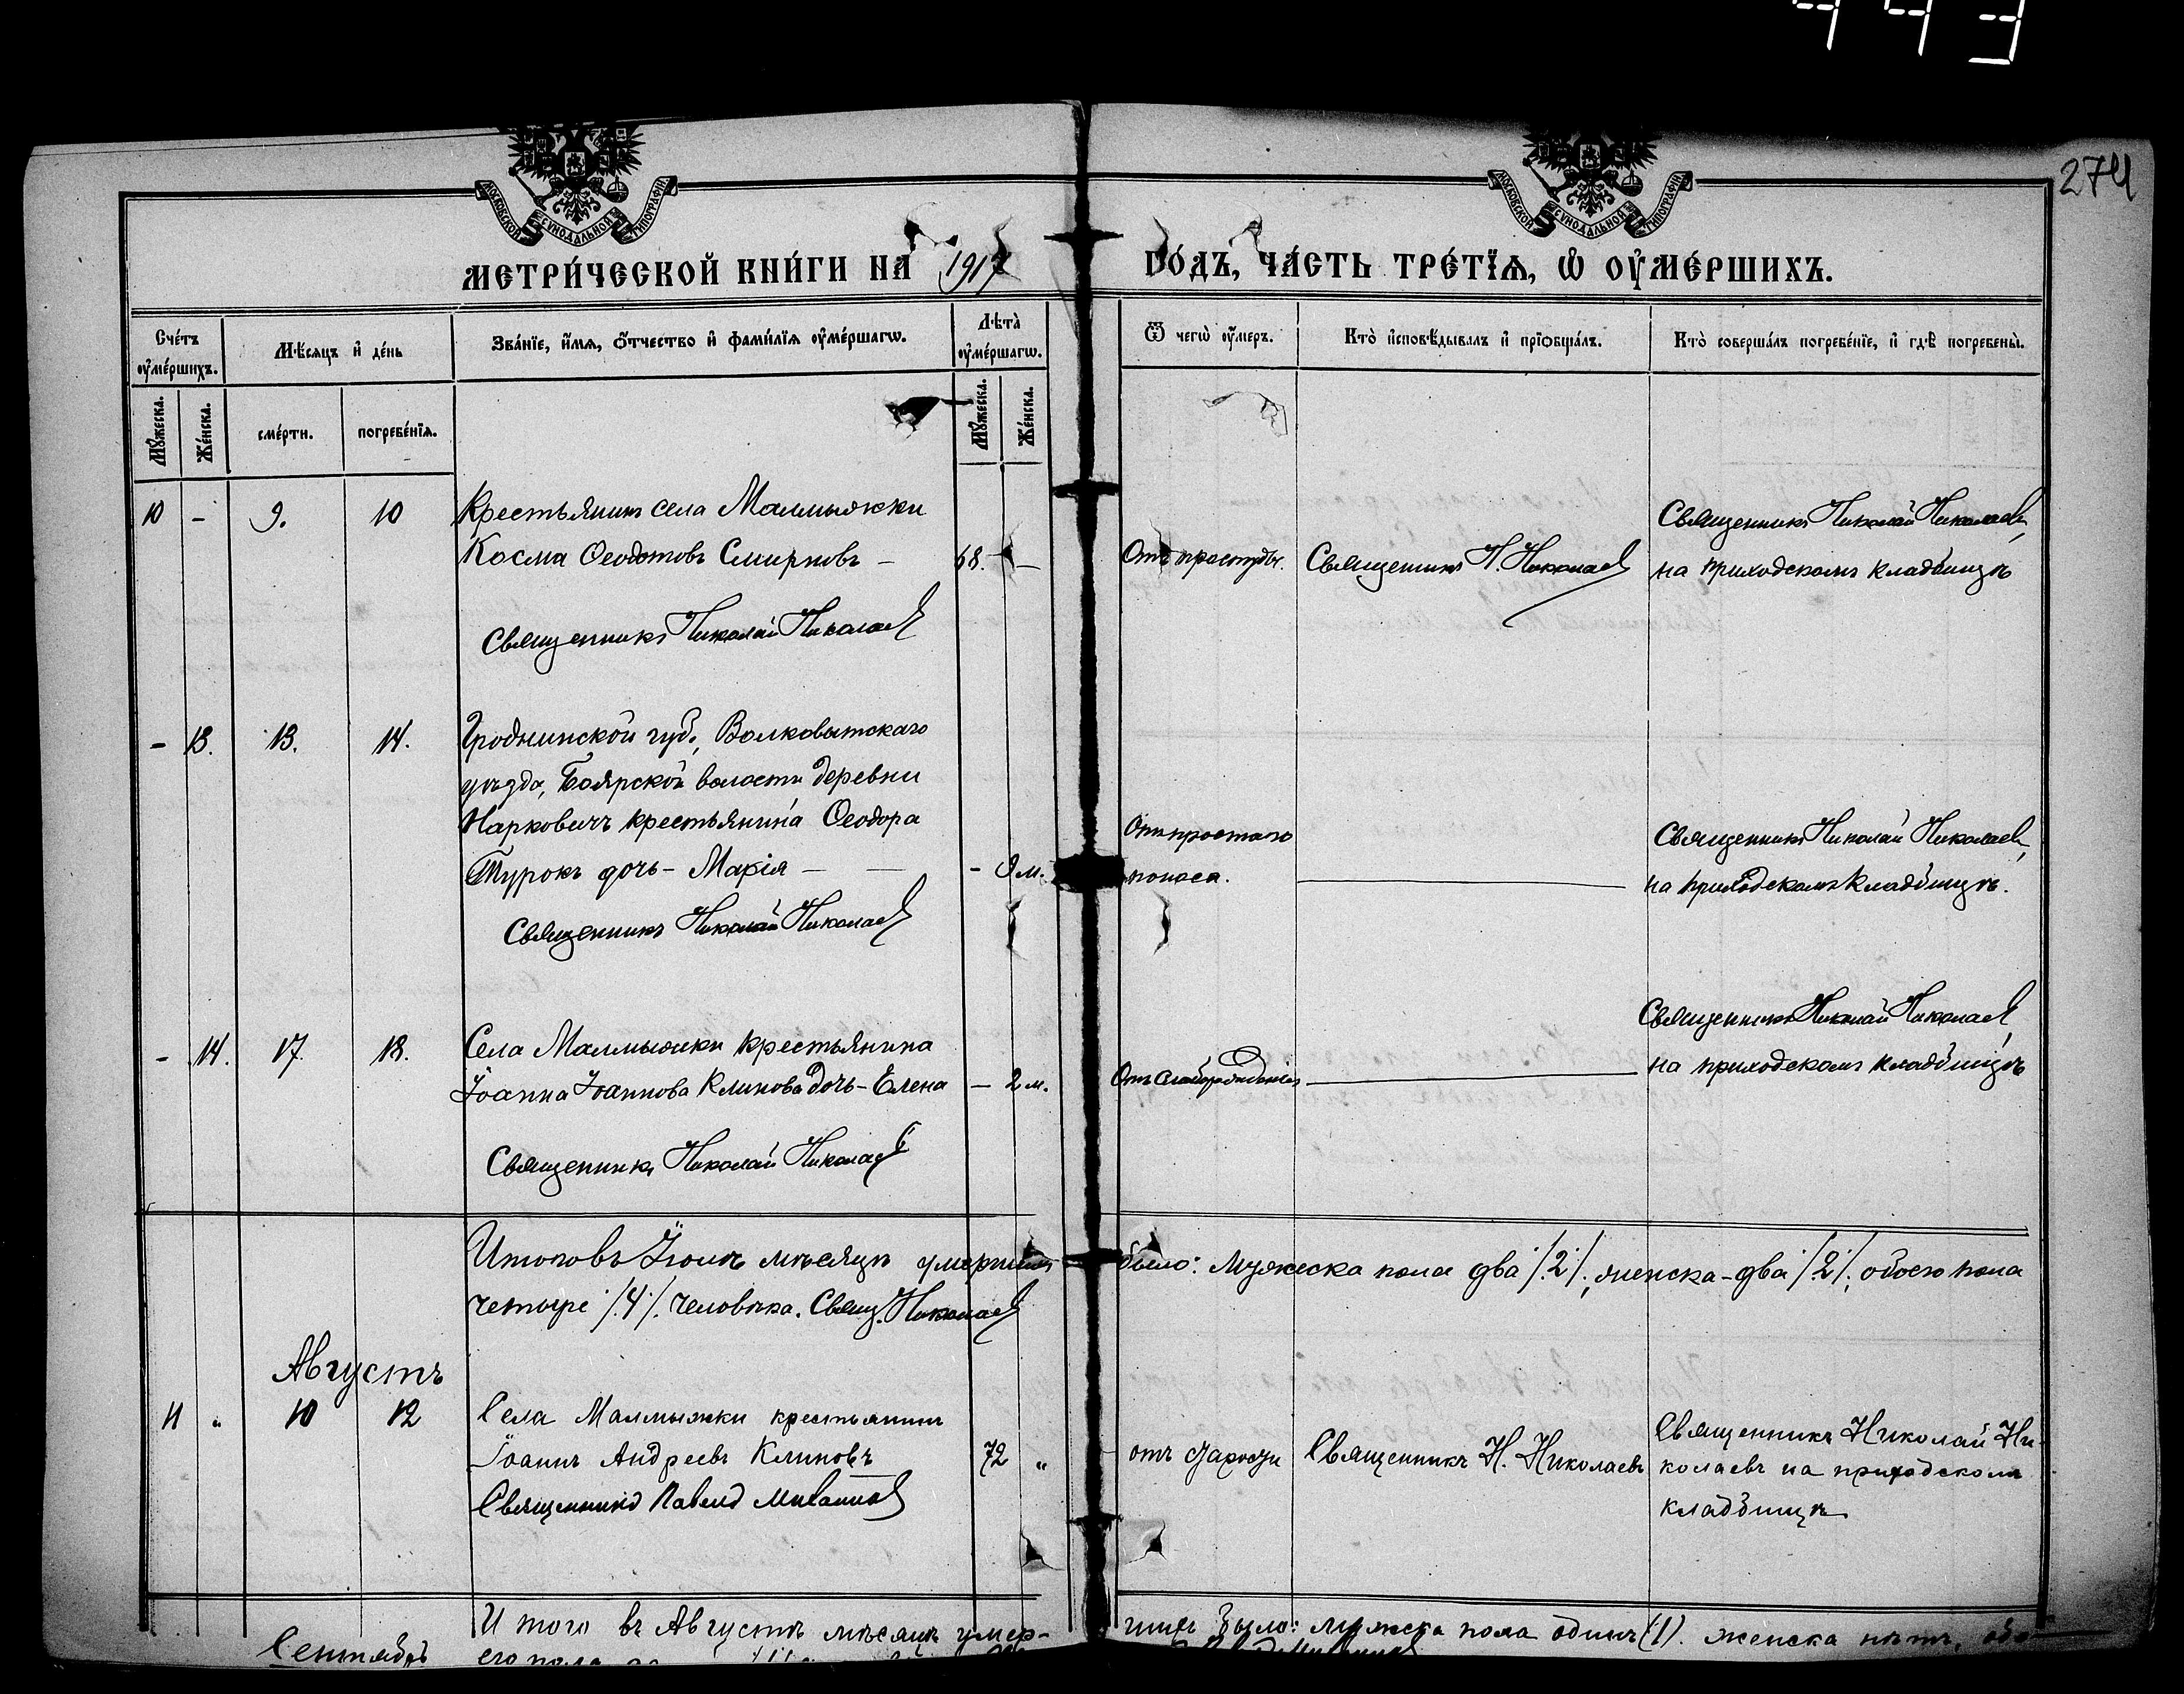 443
274
МОСКОВСКОЙ СѴНОДАЛЬНОЙ ТИПОГРАФІИ
МОСКОВСКОЙ СѴНОДАЛЬНОЙ ТИПОГРАФІИ
МЕТРИ́ЧЕСКОЙ КНИ́ГИ НА 1917 ГО́ДЪ, ЧА́СТЬ ТРЕ́ТЇѦ, Ѡ҆ ОУ҆МЕ́РШИХЪ.
Сче́тъ оу҆ме́ршихъ.
Мѣ́сяцъ и҆ де́нь
Зва́нїе, и҆́мѧ, ѻ҆́тчество и҆ фами́лїѧ оу҆ме́ршагѡ.
Лѣта̀ оу҆ме́ршагѡ.
Ѿ чегѡ̀ оу҆́меръ.
Кто̀ и҆сповѣ́дывалъ и҆ прїѡбща́лъ.
Кто̀ соверша́лъ погребе́нїе, и҆ гдѣ̀ погребены̀.
Мꙋ́жеска.
Же́нска.
сме́рти.
погребе́нїѧ.
Мꙋ́жеска.
Же́нска.
10 - 9. 10 Крестьянинъ села Малмыжки
Косма Ѳеодотовъ Смирновъ — 68. —
Священникъ Николай Николаевъ
Отъ простуды.
Священникъ Н. Николаевъ
Священникъ Николай Николаевъ,
на приходскомъ кладбищѣ
- 13. 13. 14. Гродненской губ., Волковытскаго
уѣзда, Боярской волости деревни
Нарковичъ крестьянина Ѳеодора
Турокъ дочь - Марія — — - 9 м.
Священникъ Николай Николаевъ
поноса.
Священникъ Николай Николаевъ,
на приходскомъ кладбищѣ.
- 14. 17. 18. Села Малмыжки крестьянина
Іоанна Іоаннова Климова дочь - Елена — 2 м.
Священникъ Николай Николаевъ
Отъ слаборожденія
Священникъ Николай Николаевъ,
на приходскомъ кладбищѣ
Итого въ Іюлѣ мѣсяцѣ умершихъ было: мужеска пола два /.2./, женска - два /.2./, обоего пола
четыре /.4./. человѣка. Свящ. Николаевъ
Августъ
11 „ 10 12 Села Малмыжки крестьянинъ
Іоаннъ Андреевъ Климовъ 72 „
Священникъ Павелъ
отъ старости
Священникъ Н. Николаевъ
Священникъ Николай Ни-
колаевъ на приходскомъ
кладбищѣ
Итого въ Августѣ мѣсяцѣ умер-
шихъ было: мужска пола одинъ (1). женска нѣтъ, обо-
Сентябрь
его пола